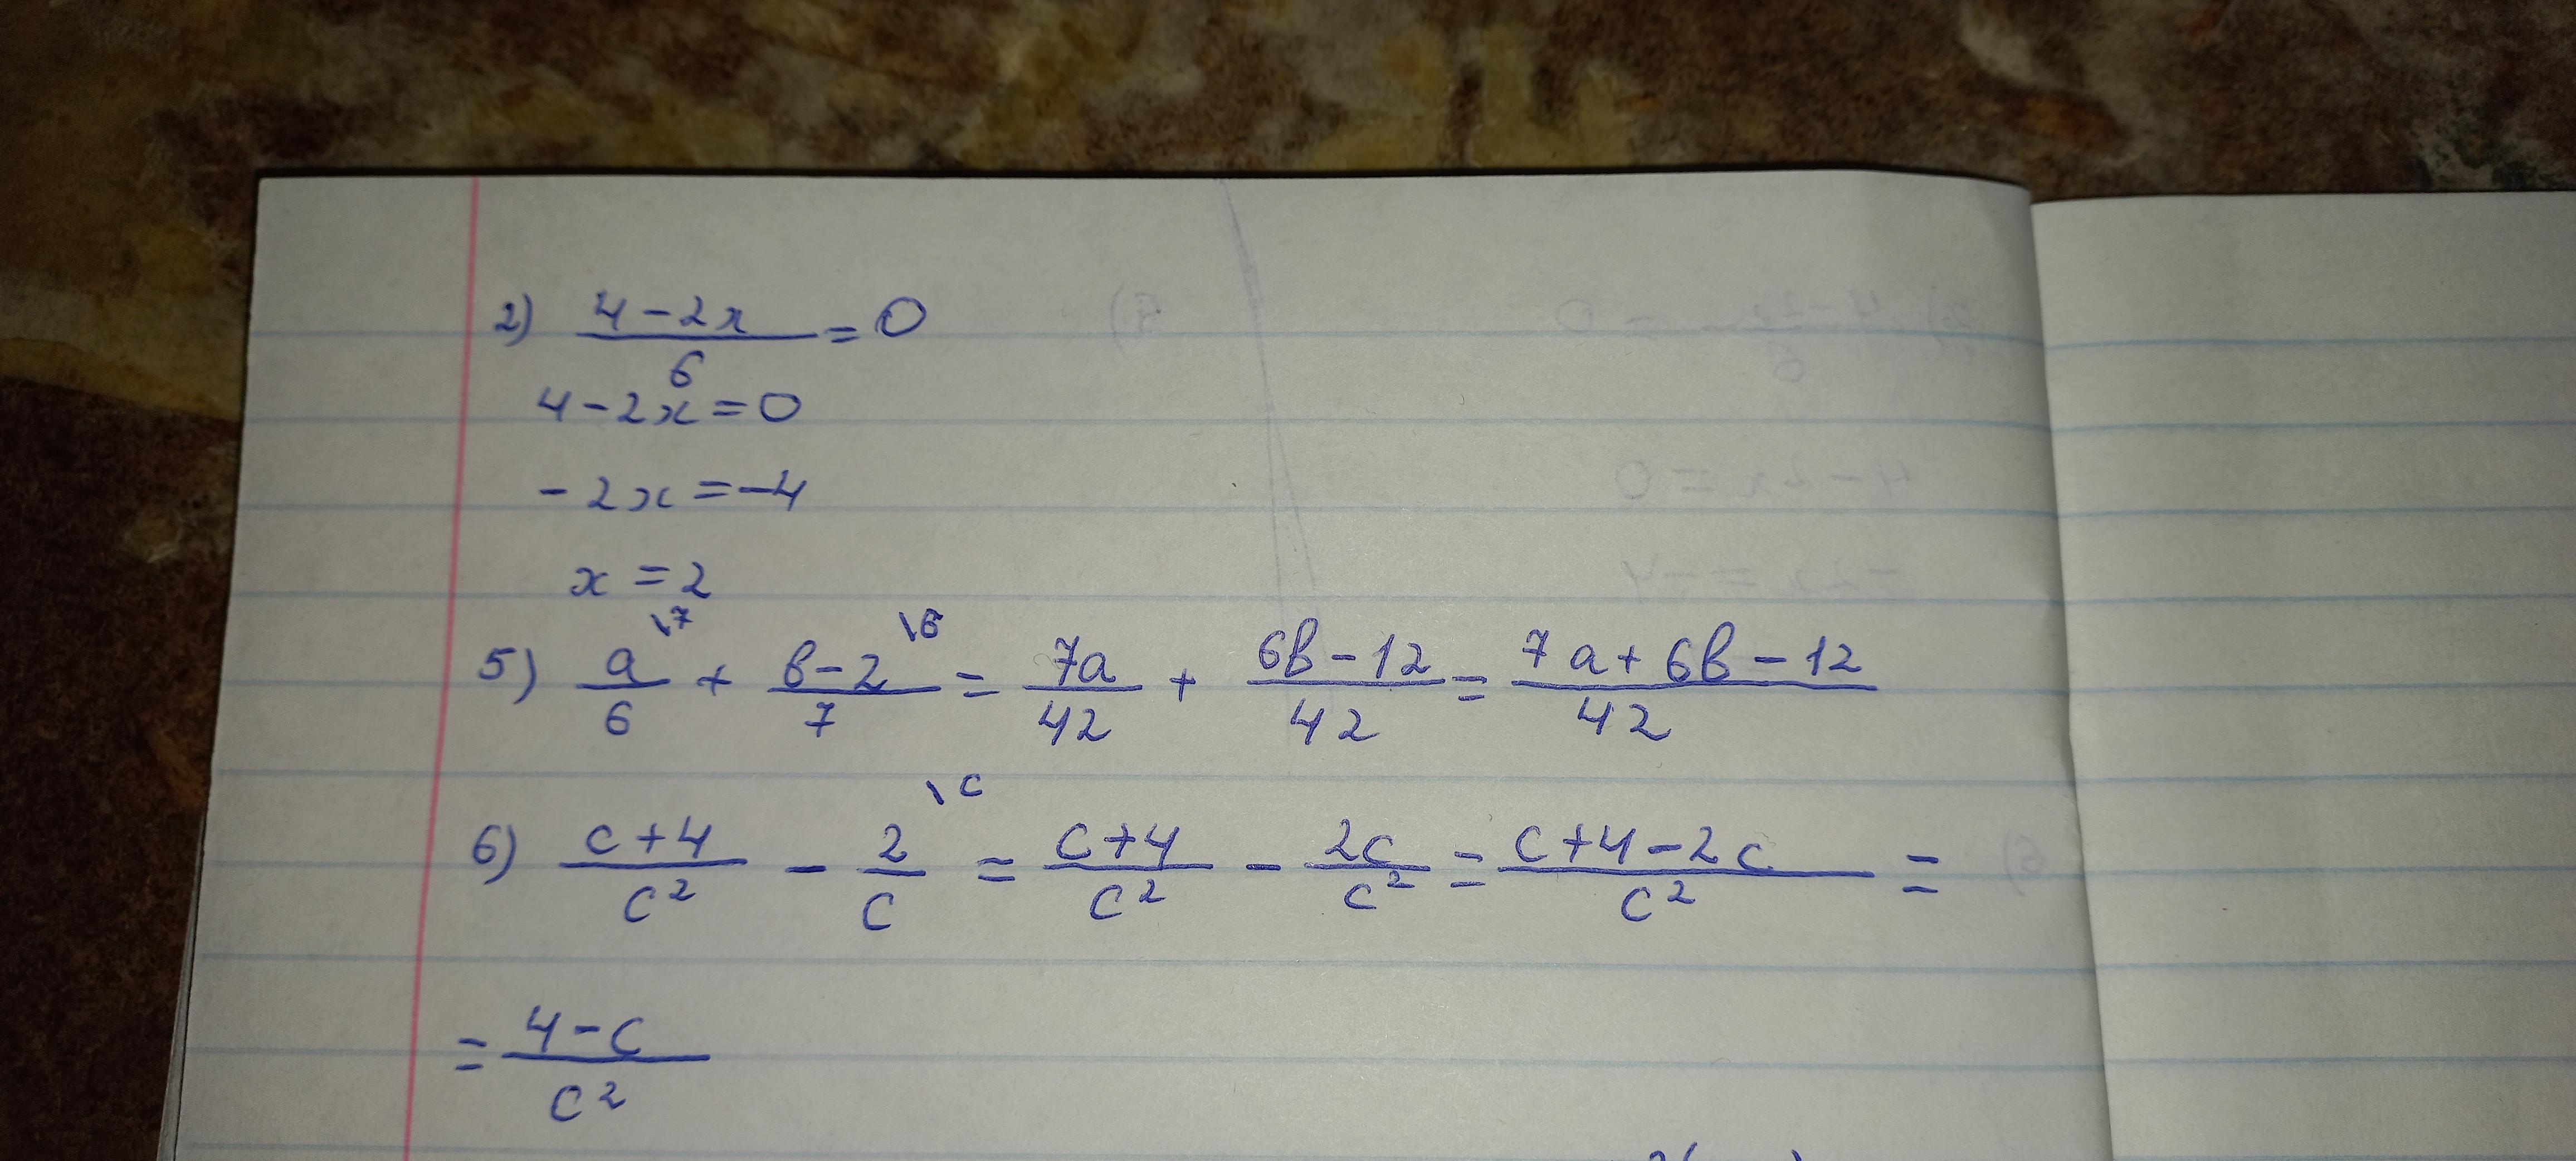 2) (4-2x)/6 = 0
4-2x=0
-2x=-4
x=2
5) a/6 \7 + (в-2)/7 \6 = 7a/42 + (6в-12)/42 = (7a+6в-12)/42
6) (c+4)/c² - 2/c \c = (c+4)/c² - 2c/c² = (c+4-2c)/c² =
= (4-c)/c²